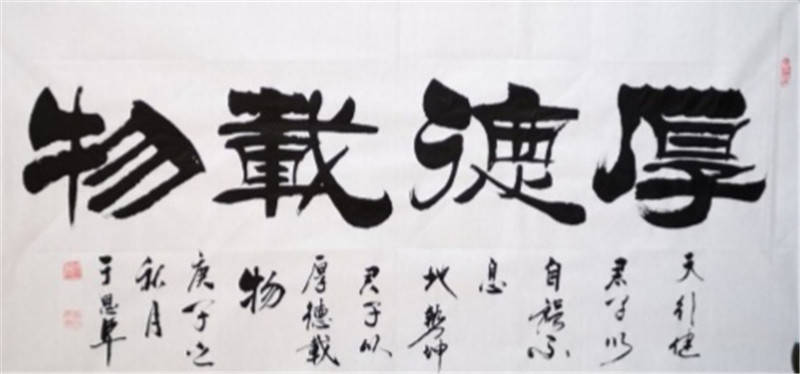 厚德載物
天行健
君子以
自強不
息
地勢坤
君子以
厚德載
物
庚子之
秋月
于恩